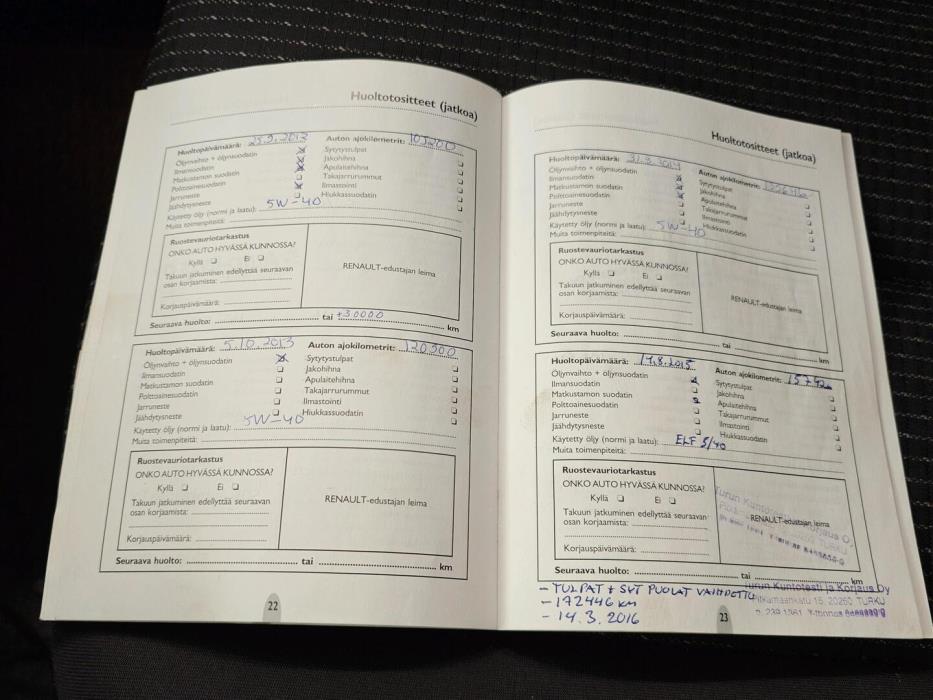 Huoltotositteet (jatkoa)
Huoltopäivämäärä: 25.9.2012 Auton ajokilometrit: 105200
Öljynvaihto + öljynsuodatin Sytytystulpat
Ilmansuodatin Jakohihna
Matkustamon suodatin Apulaitehihna
Polttoainesuodatin Takajarrurummut
Jarruneste Ilmastointi
Jäähdytysneste Hiukkassuodatin
Käytetty öljy (normi ja laatu): 5W-40
Muita toimenpiteitä:
Ruostevauriotarkastus
ONKO AUTO HYVÄSSÄ KUNNOSSA?
Kyllä Ei
RENAULT-edustajan leima
Takuun jatkuminen edellyttää seuraavan
osan korjaamista:
Korjauspäivämäärä:
Seuraava huolto: tai +30000 km
Huoltopäivämäärä: 5.10.2013 Auton ajokilometrit: 120500
Öljynvaihto + öljynsuodatin Sytytystulpat
Ilmansuodatin Jakohihna
Matkustamon suodatin Apulaitehihna
Polttoainesuodatin Takajarrurummut
Jarruneste Ilmastointi
Jäähdytysneste Hiukkassuodatin
Käytetty öljy (normi ja laatu): 5W-40
Muita toimenpiteitä:
Ruostevauriotarkastus
ONKO AUTO HYVÄSSÄ KUNNOSSA?
Kyllä Ei
RENAULT-edustajan leima
Takuun jatkuminen edellyttää seuraavan
osan korjaamista:
Korjauspäivämäärä:
Seuraava huolto: tai km
22
Huoltotositteet (jatkoa)
Huoltopäivämäärä: 31.3.2014 Auton ajokilometrit:
Öljynvaihto + öljynsuodatin Sytytystulpat
Ilmansuodatin Jakohihna
Matkustamon suodatin Apulaitehihna
Polttoainesuodatin Takajarrurummut
Jarruneste Ilmastointi
Jäähdytysneste Hiukkassuodatin
Käytetty öljy (normi ja laatu): 5W-40
Muita toimenpiteitä:
Ruostevauriotarkastus
ONKO AUTO HYVÄSSÄ KUNNOSSA?
Kyllä Ei
RENAULT-edustajan leima
Takuun jatkuminen edellyttää seuraavan
osan korjaamista:
Korjauspäivämäärä:
Seuraava huolto: tai km
Huoltopäivämäärä: 17.8.2015 Auton ajokilometrit:
Öljynvaihto + öljynsuodatin Sytytystulpat
Ilmansuodatin Jakohihna
Matkustamon suodatin Apulaitehihna
Polttoainesuodatin Takajarrurummut
Jarruneste Ilmastointi
Jäähdytysneste Hiukkassuodatin
Käytetty öljy (normi ja laatu): ELF 5/40
Muita toimenpiteitä:
Ruostevauriotarkastus
ONKO AUTO HYVÄSSÄ KUNNOSSA?
Kyllä Ei
Turun
RENAULT-edustajan leima
TURKU
Takuun jatkuminen edellyttää seuraavan
osan korjaamista:
Korjauspäivämäärä:
Seuraava huolto: tai km
- TULPAT + SYT PUOLAT VAIHDETTU
Turun Kuntotesti ja Korjaus Oy
- 172446 km
15, 20260 TURKU
- 14.3.2016
23